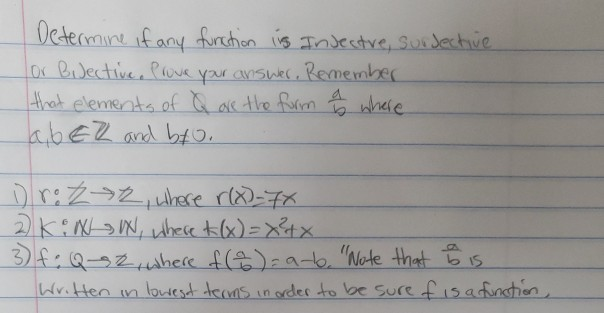 Determine if any function is Injectve, surjective
or Bijective. Prove your answer. Remember
that elements of ℚ are the form a/b where
a,b ∈ ℤ and b≠0.
1) r: ℤ→ℤ, where r(x)=7x
2) K: ℕ→ℕ, where k(x)=x²+x
3) f: ℚ→ℤ, where f(a/b)=a-b. "Note that a/b is
written in lowest terms in order to be sure f is a function.